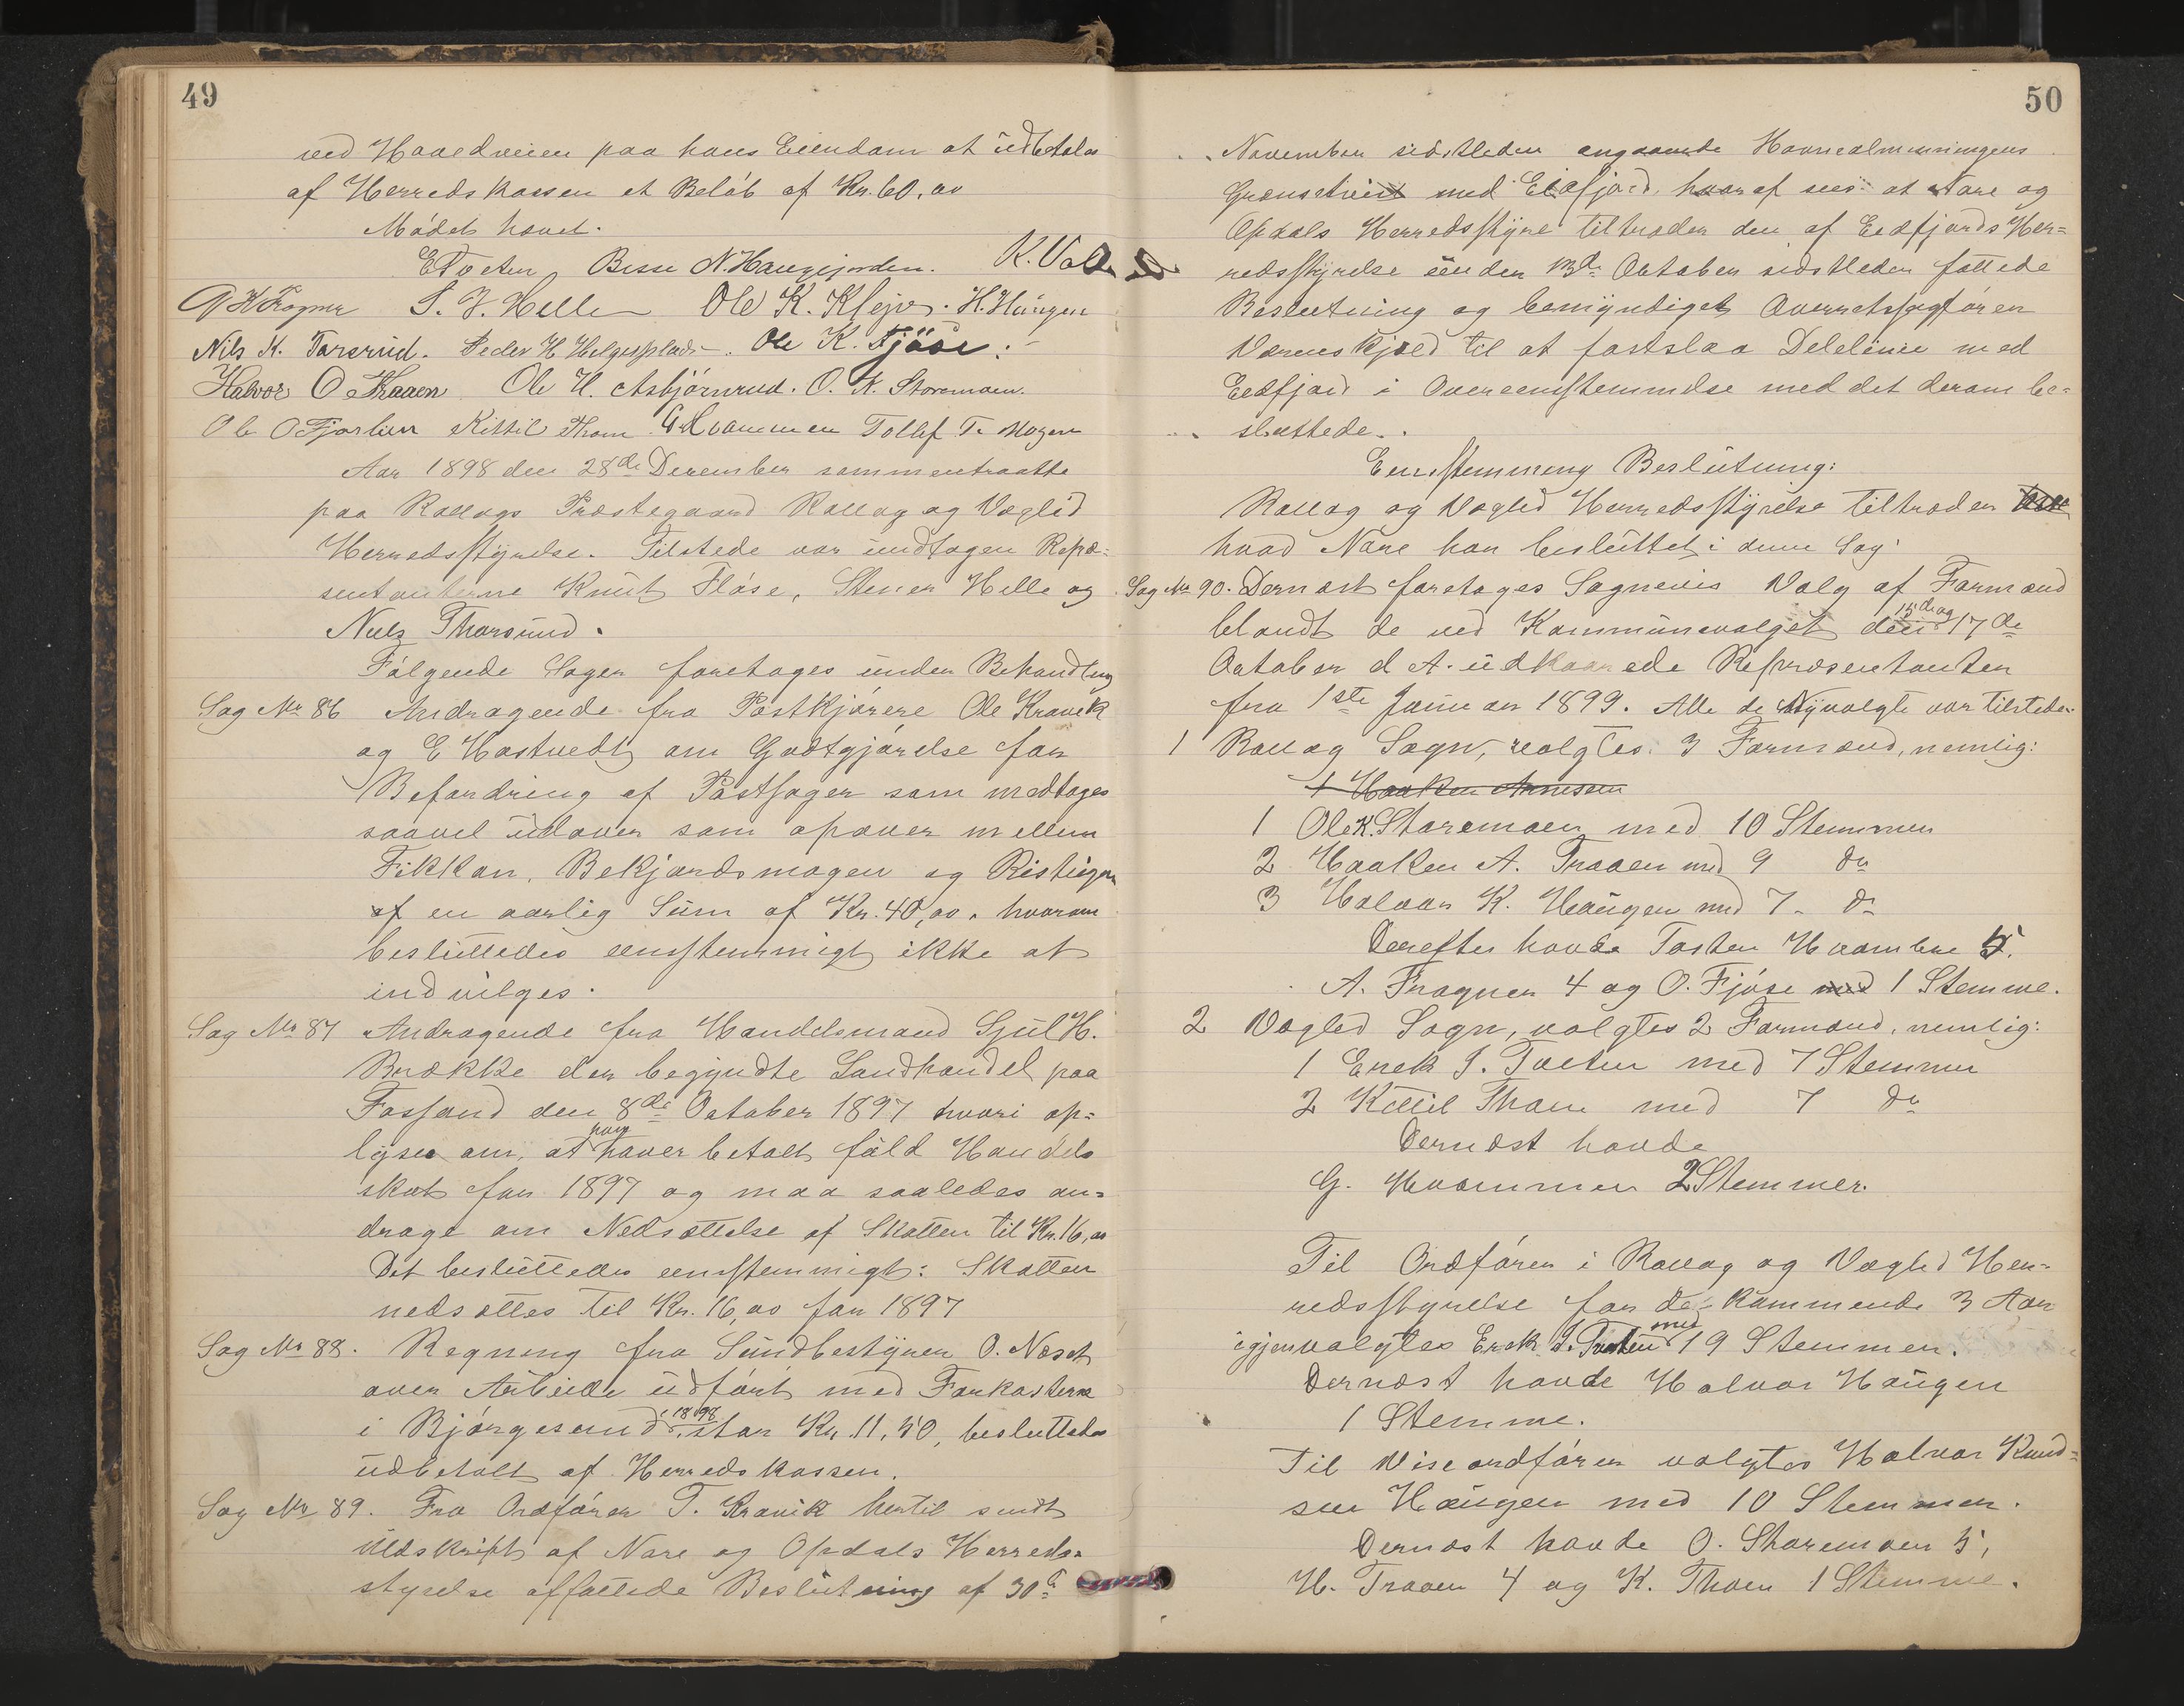 49
ved Hovedveien paa hans Eiendom at udbetales
af Herredskassen et Beløb af Kr. 60,00
Mødet hævet.
E Toeten Besse N. Haugejorden. K. Volen
S. J. Helle Ole K. Klejvo. H. Haugen
Nils K. Tarsrud. Peder H Helgesplads. Ole K. Fjøse.
Halvor O Thraaen Ole H. Asbjørnrud. O. K. Storemoen.
Ole O Fjorlien Kittil Thoen G Hvammen Tollef T. Mogen
Aar 1898 den 28de December sammentraadte
paa Rollags Præstegaard Rollag og Vægli
Herredsstyrelse. Tilstede var undtagen Repræ=
sentanterne Knut Fløse, Stener Helle og
Niels Tharsrud.
Følgende Sager foretoges under Behandling
Sag No 86 Andragende fra Postkjørere Ole Kravik
og E Hastvedt om Godtgjørelse for
Befordring af Postsager som medtages
saavel udover som opover mellem
Fikkan, Bekjordsmogen og Risteigen
af en aarlig Sum af Kr. 40,00. hvorom
besluttedes eenstemmigt ikke at
indvilges.
Sag No 87 Andragende fra Handelsmand Gjul H.
Brække der begyndte Landhandel paa
Fossand den 8de October 1897 hvori op=
lyses om, at han haver betalt fuld Handels
skat for 1897 og maa saaledes an=
drage om Nedsættelse af Skatten til Kr. 16,00
Det besluttedes eenstemmigt: Skatten
nedsættes til Kr. 16,00 for 1897
Sag No 88. Regning fra Sundbestyrer O. Næset
over Arbeide udført med Forkasterne
i Bjørgesund i 1898, stor Kr. 11,50, besluttedes
udbetalt af Herredskassen.
Sag No 89. Fra Ordfører T. Kravik hertil sendt
Udskrift af Nore og Opdals Herreds=
styrelse affattede Beslutning af 30te
50
November sidstleden angaaende Havnealmenningens
Grændsetvist med Eidfjord, hvoraf sees at Nore og
Opdals Herredsstyre tiltræder den af Eidfjords Her=
redsstyrelse under 13de October sidstleden fattede
Beslutning og bemyndiget Overretssagfører
Værenskjold til at fastslaa Delelinie med
Eedfjord i Overeenstemmelse med det derom be=
sluttede.
Eenstemmeng Beslutning:
Rollag og Vægli Herredsstyrelse tiltræder
hvad Nore har besluttet i denne Sag.
Sag No 90. Dernæst foretoges Sognevis Valg af Formænd
blandt de ved Kommunevalget den 15de og 17de
October d A. udkaarede Repræsentanter
fra 1ste Januar 1899. Alle de Nyvalgte var tilstede.
1 Rollag Sogn, valgtes 3 Formænd, nemlig:
1 Haaken Annesen
1 Ole K. Storemoen med 10 Stemmer
2 Haaken A. Traaen med 9 do
3 Halvor K. Haugen med 7 do
Derefter havde Tosten Hvambne 5.
A. Frogner 4 og O. Fjøse med 1 Stemme.
2 Vægli Sogn, valgtes 2 Formænd, nemlig:
1 Erek J. Toeten med 7 Stemmer
2 Kittil Thoen med 7 do
Dernæst havde
G. Hvammen 2 Stemmer.
Til Ordfører i Rollag og Vægli Her=
redsstyrelse for de kommende 3 Aar
igjenvalgtes Erek J. Toeten med 19 Stemmer.
Dernæst havde Halvor Haugen
1 Stemme.
Til Viseordfører valgtes Halvor Knud=
sen Haugen med 10 Stemmer.
Dernæst havde O. Storemoen 5,
H. Traaen 4 og K. Thoen 1 Stemme.